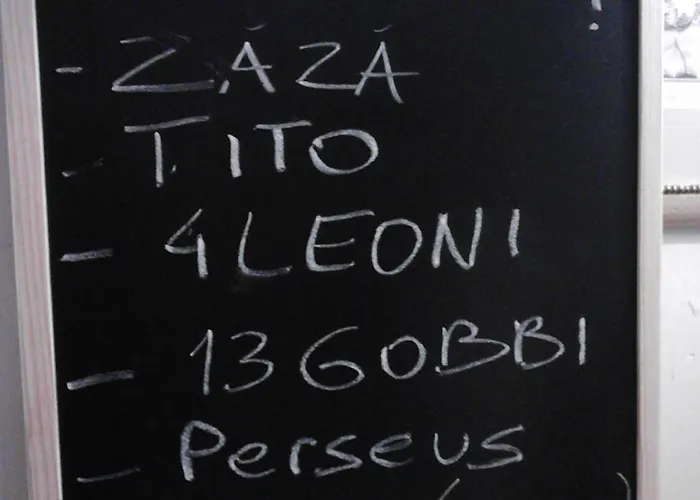 - ZÁZÁ
- TITO
- 4 LEONI
- 13 GOBBI
- Perseus